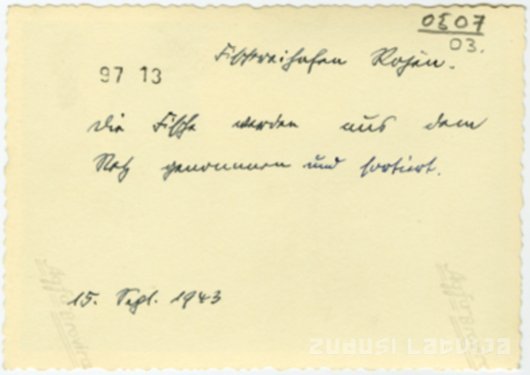 0507
03.
97 13
Fischereihafen Rojen.
Die Fische werden aus dem
Netz genommen und sortiert.
15. Sept. 1943
zudusi Latvija